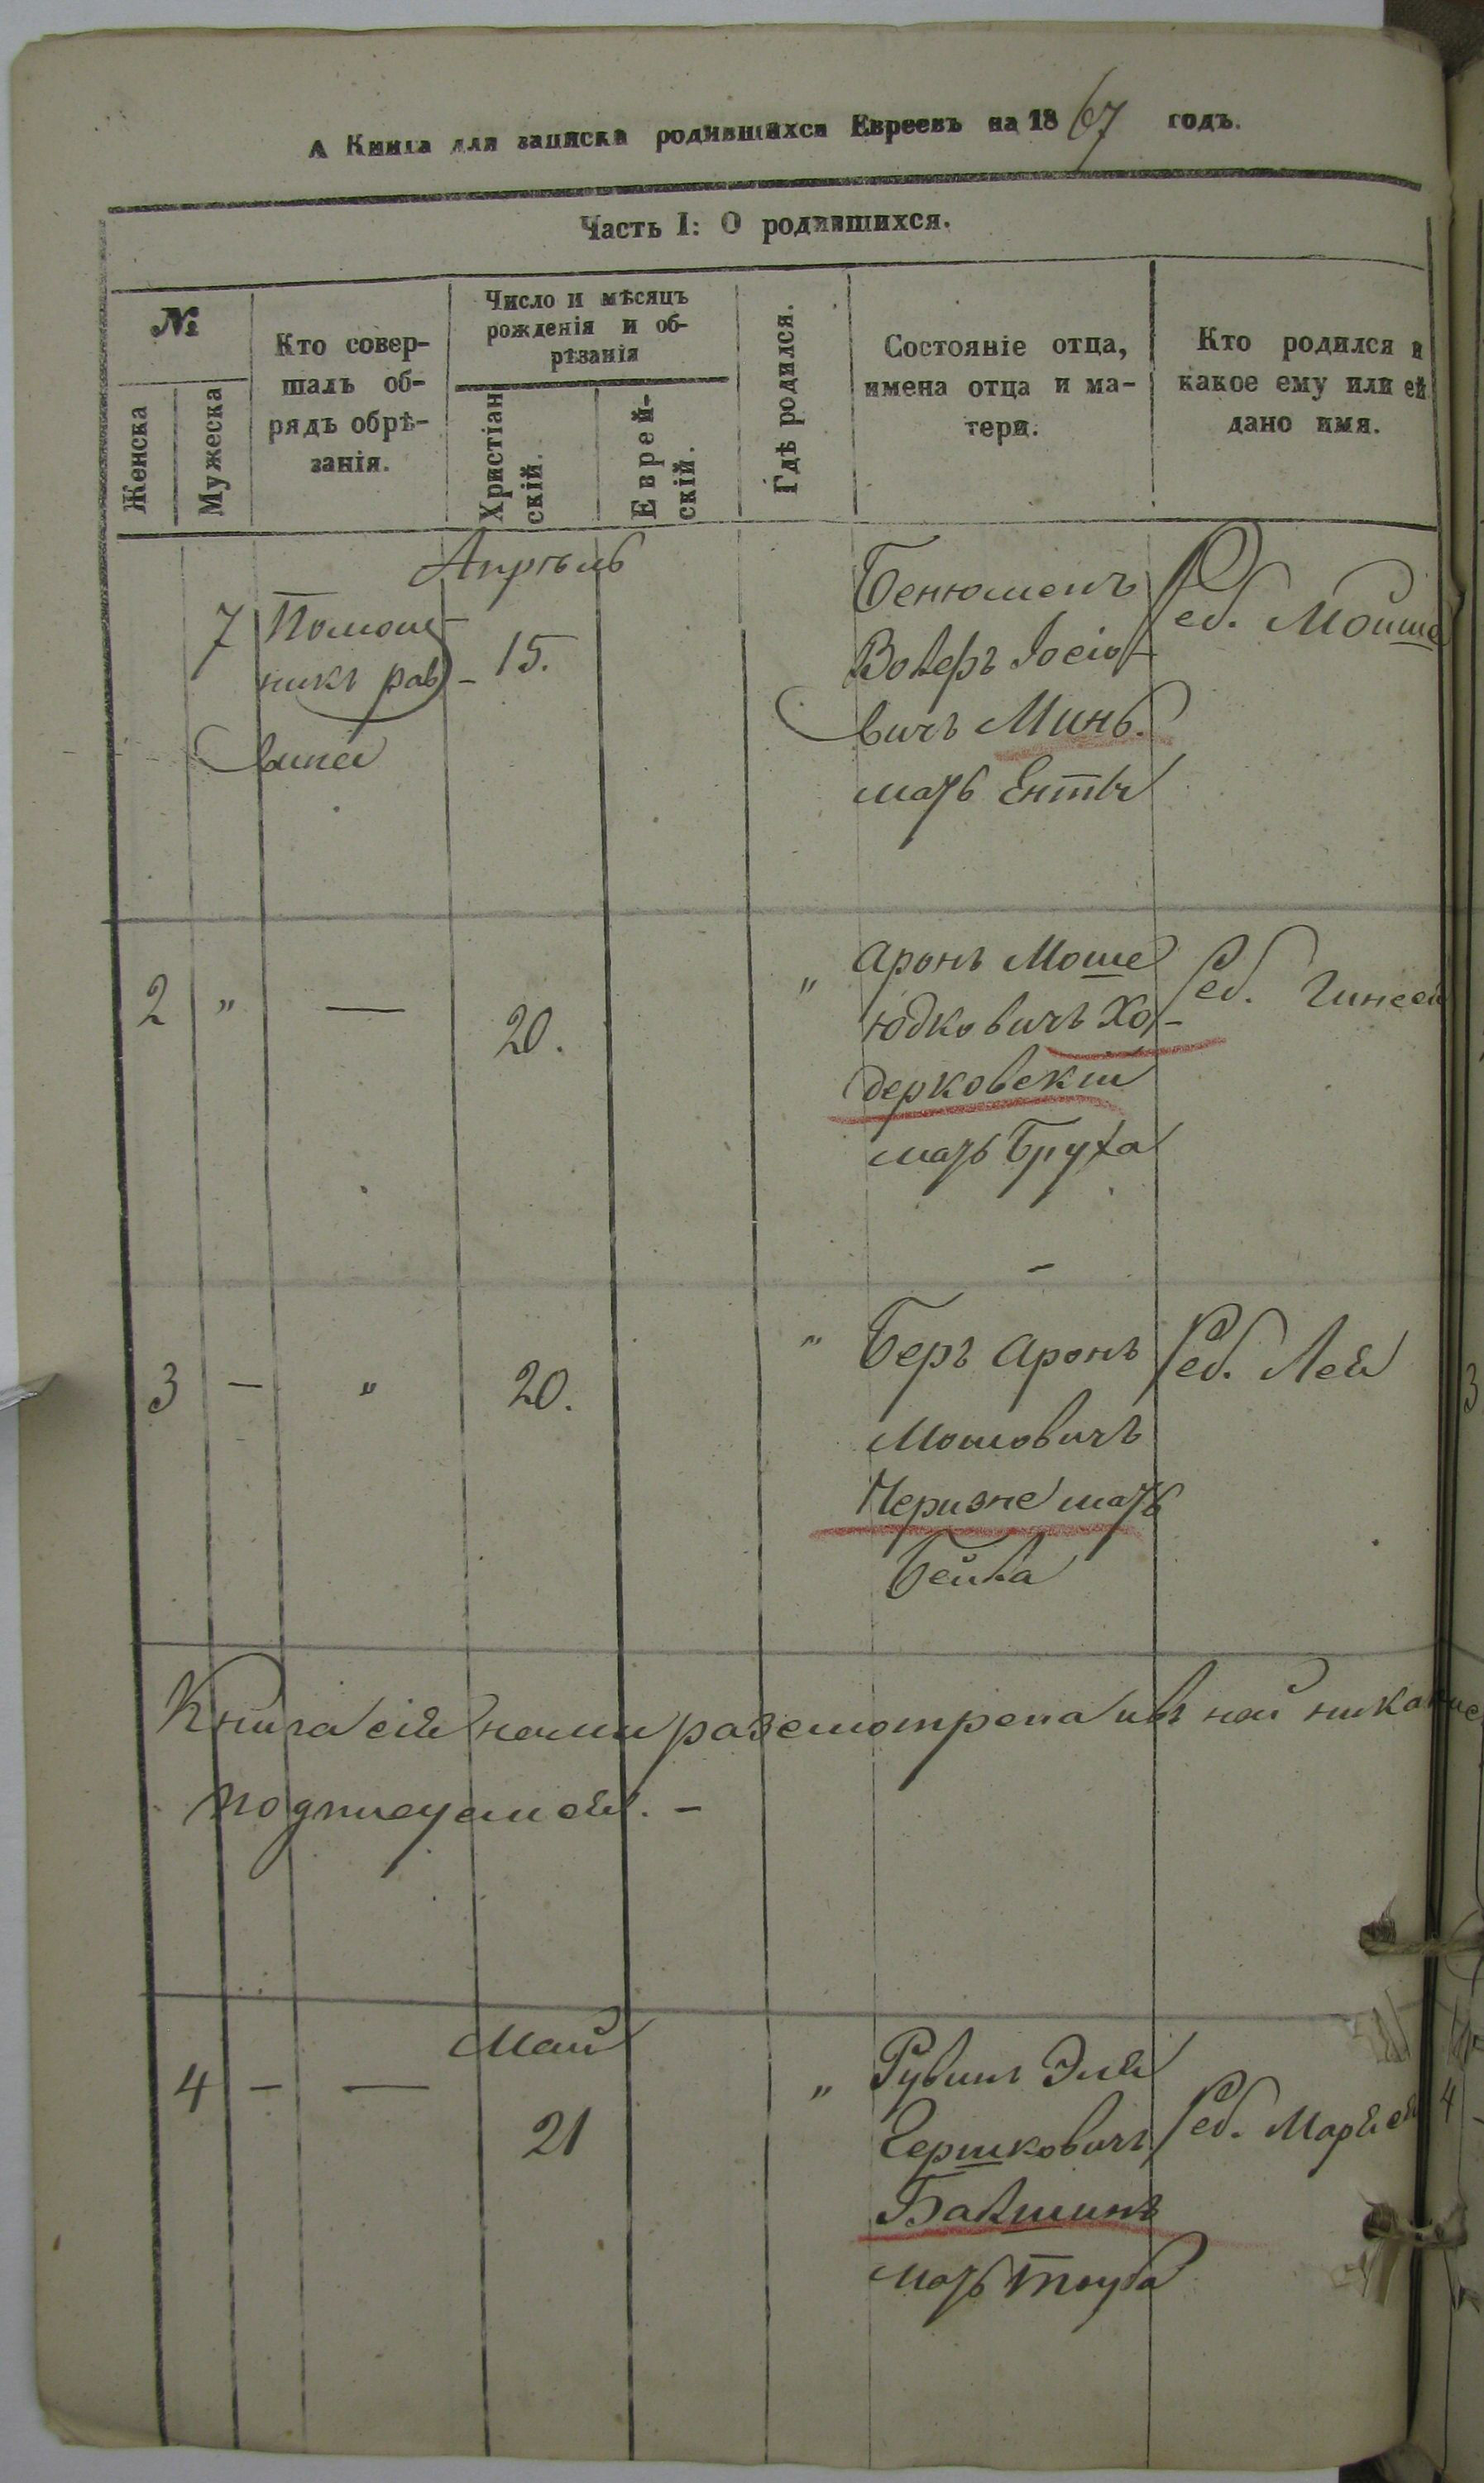 А Книга для записки родившихся Евреевъ на 1867 годъ.
Часть I: О родившихся.
№
Женска
Мужеска
Кто совер-
шалъ об-
рядъ обрѣ-
занія.
Число и мѣсяцъ
рожденія и об-
рѣзанія
Христіан
скій.
Еврей-
скій.
Гдѣ родился.
Состояніе отца,
имена отца и ма-
тери.
Кто родился и
какое ему или ей
дано имя.
Апрѣль
7 Помощ-
никъ рав-
вина
15.
Бенюменъ
Волфъ Іосіо-
вичъ Минь.
мать Ента
Реб. Мойше
2 " —
20.
" Аронъ Моше
Юдковичъ Хо-
дерковскій
мать Бруха
Реб. Гинсея
3 — "
20.
" Беръ Аронъ
Мошовичъ
Черизне мать
Бейла
Реб. Лея
Книга сія нами разсмотрена и въ ней никакие
подписуемся. —
Май
4 — —
21
" Рувинъ Эля
Гершковичъ
Бакшинъ
мать Тауба
Реб.
4